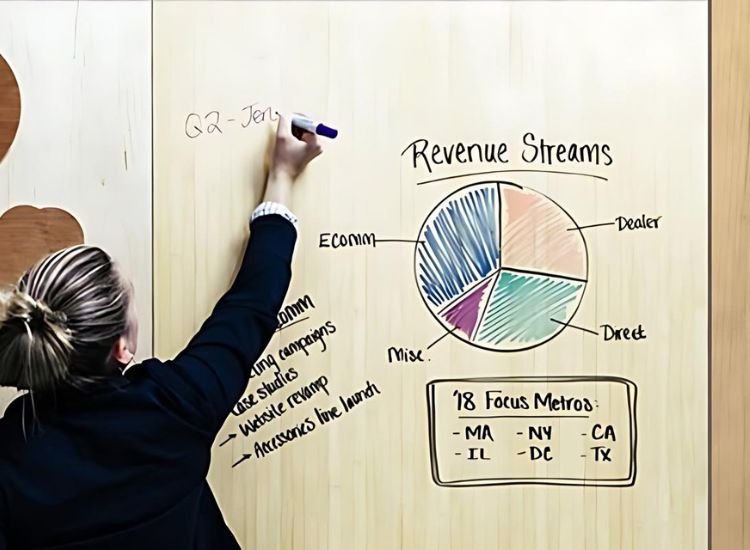 Q2-Jen
Revenue Streams
Ecomm
Dealer
Direct
Misc.
campaigns
case studies
→ Website revamp
→ Accessories line launch
'18 Focus Metros:
- MA - NY - CA
- IL - DC - TX